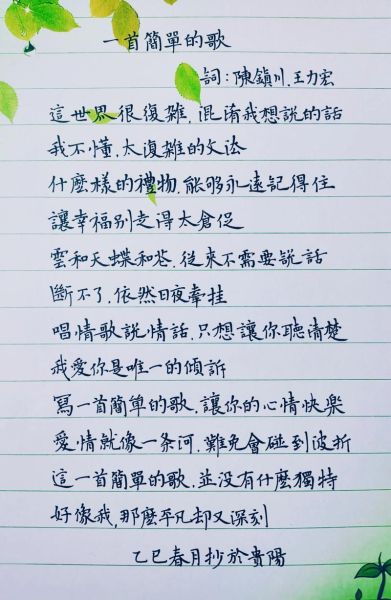 一首簡單的歌
詞：陳鎮川.王力宏
這世界很復雜.混淆我想說的話
我不懂.太復雜的文法
什麽樣的禮物.能够永遠記得住
讓幸福别走得太倉促
雲和天蝶和花.從來不需要説話
斷不了.依然日夜牽挂
唱情歌說情話.只想讓你聽清楚
我愛你是唯一的傾訴
寫一首簡單的歌.讓你的心情快樂
愛情就像一条河.難免會碰到波折
這一首簡單的歌.並没有什麽獨特
好像我.那麽平凡却又深刻
乙巳春月抄於貴陽